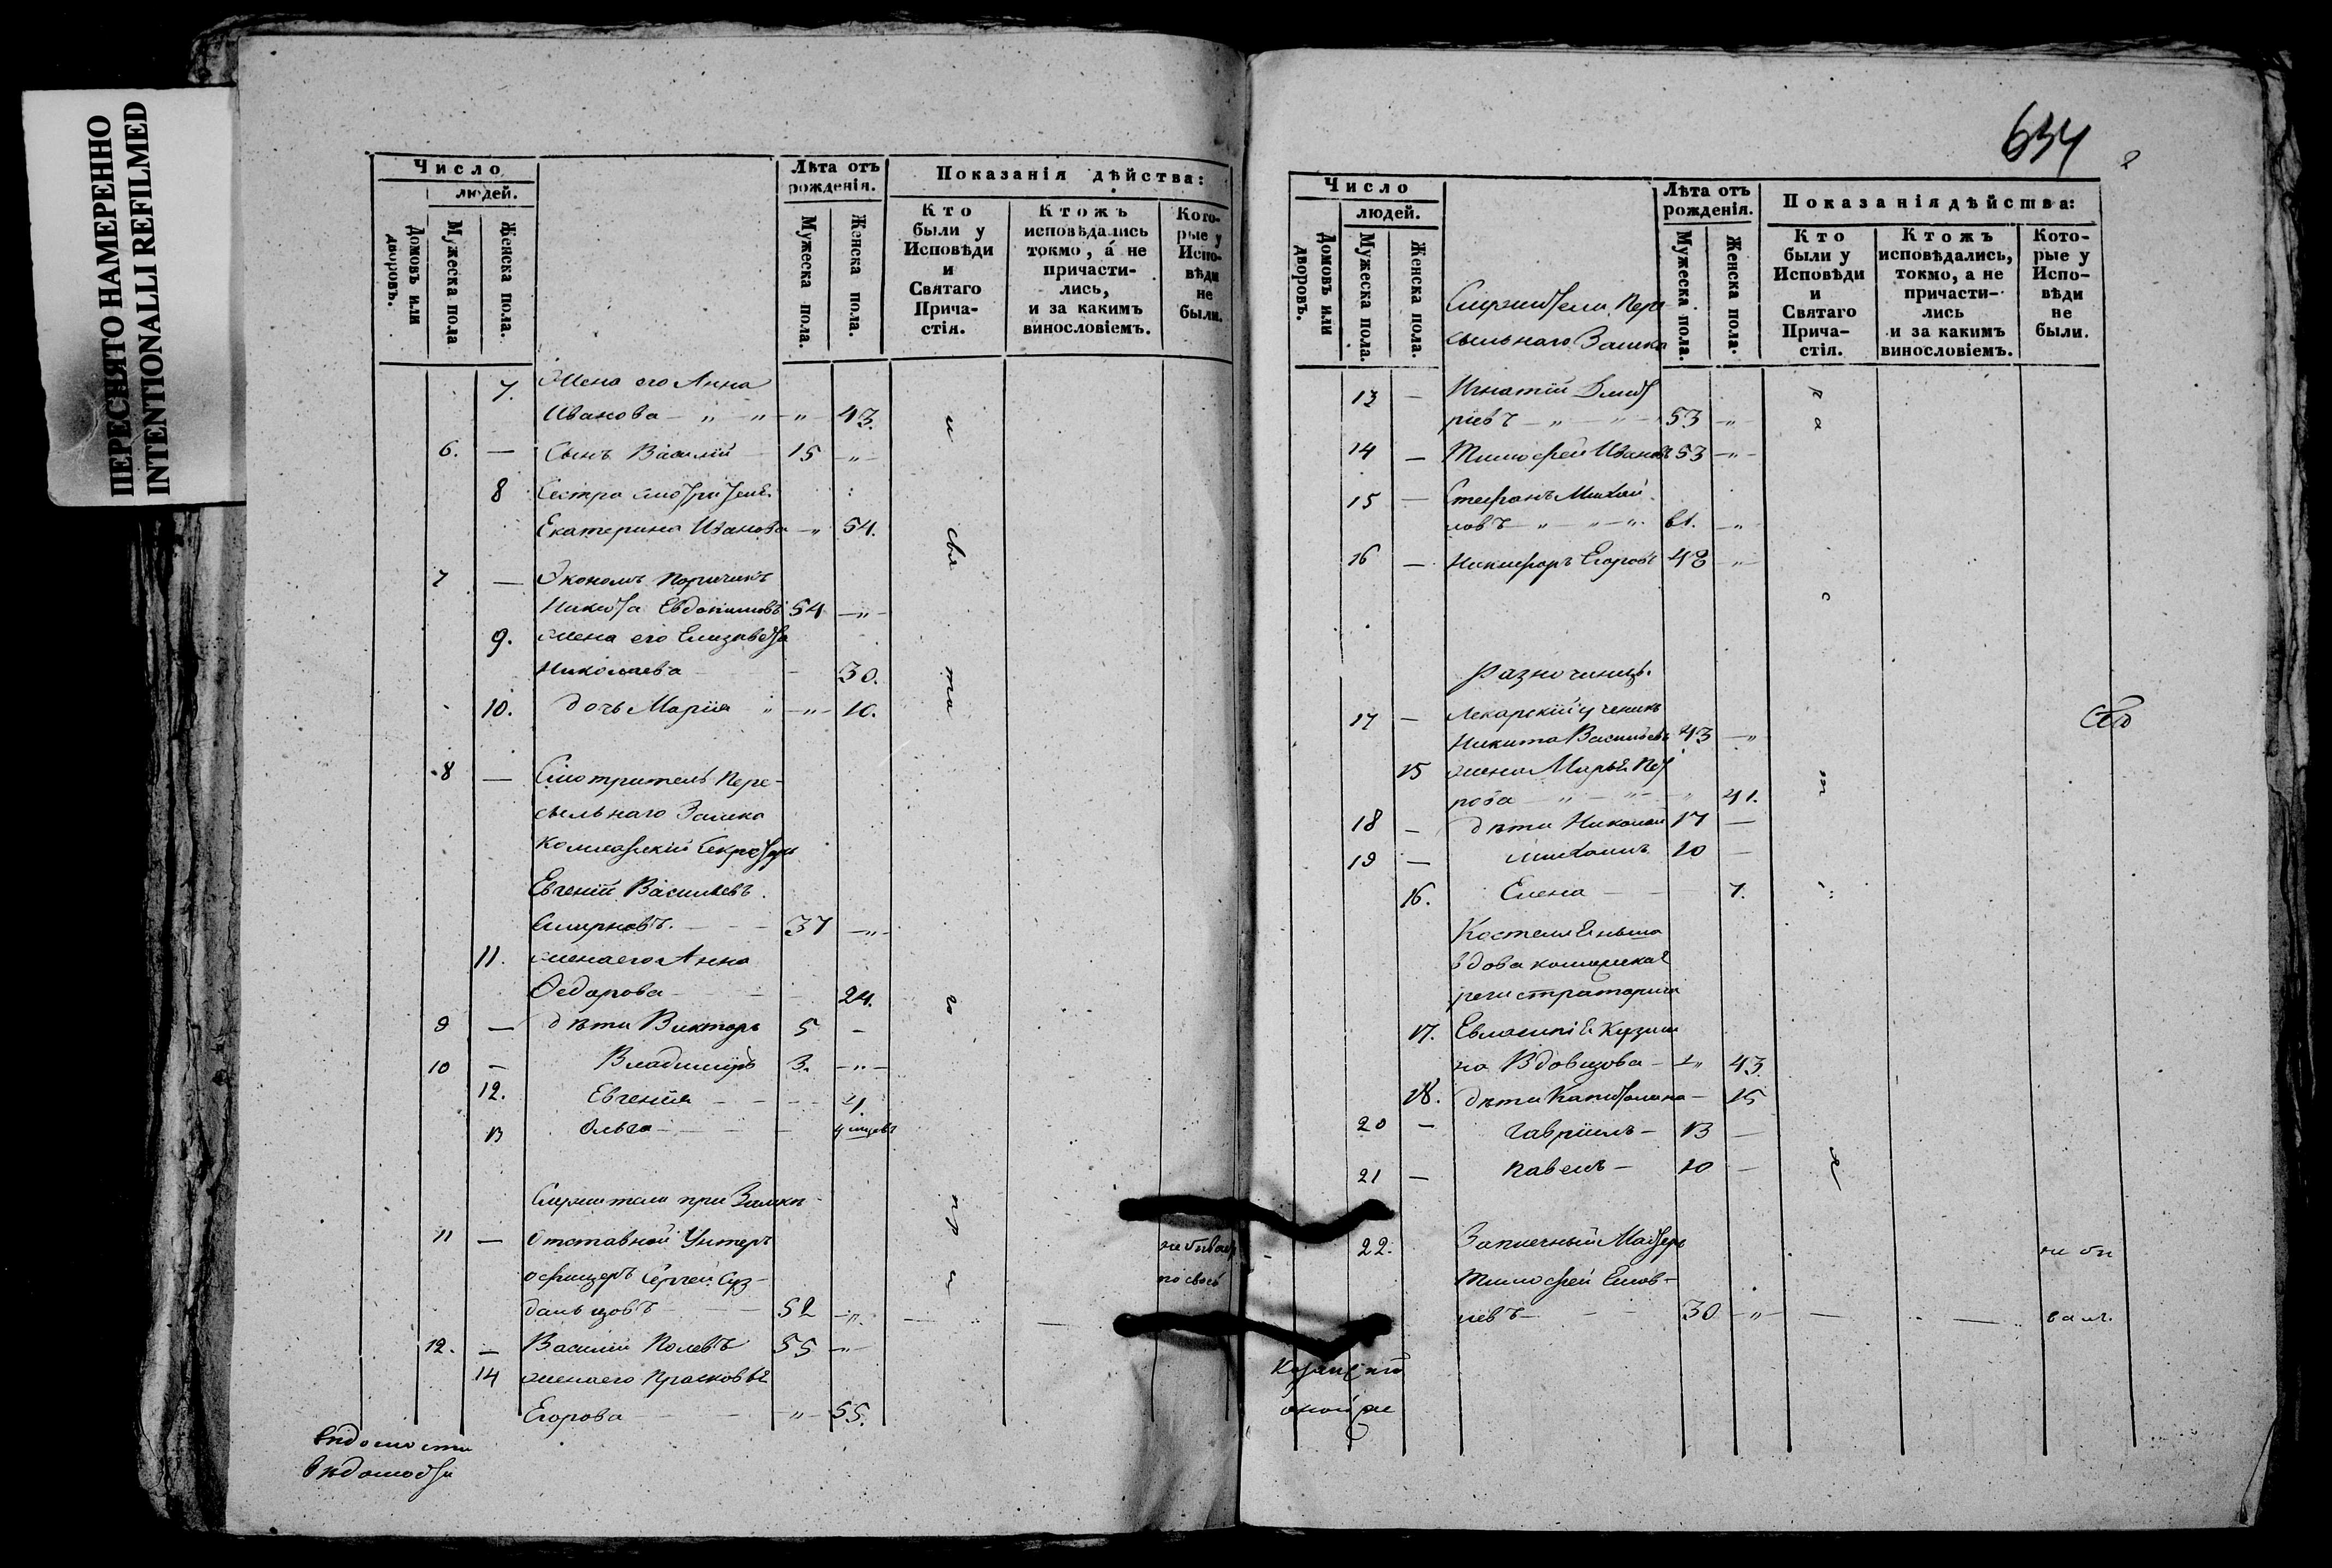 ПЕРЕСНЯТО НАМЕРЕННО
INTENTIONALLI REFILMED
Число
людей.
Домовъ или дворовъ.
Мужеска пола
Женска пола.
Лѣта отъ рожденія.
Мужеска пола.
Женска пола.
Показанія дѣйства:
Кто были у Исповѣди и Святаго Прича-стія.
Ктожъ исповѣдались токмо, а не причасти-лись, и за какимъ винословіемъ.
Кото-рые у Испо-вѣди не были.
7. Жена его Анна
Иванова — „ — „ — „ — 43.
6. — Сынъ Василій 15 — „ —
8 Сестра смотрителя
Екатерина Иванова — „ 54.
7 — Экономъ Поручикъ
Никита Евдокимовъ 54 — „ —
9. жена его Елизавета
Николаева — 30.
10. дочь Марія „ — „ — 10.
8 — Смотритель Пере-
сыльнаго Замка
Коллежскій Секретарь
Евгеній Васильевъ
Смирновъ. — 37 — „ —
11. жена его Анна
Федорова — 24.
9 — дѣти Викторъ 5 —
10 — Владиміръ 3. — „ —
12. Евгенія — 4.
13 Ольга —
Служители при Замкѣ
11 — Отставной Унтеръ
офицеръ Сергей Суз-
дальцовъ — 52 — „ —
12. — Василій Полевъ 55 — „ —
14 жена его Прасковья
Егорова — „ — 55.
и
свя
та
го
пр
и
Вѣдомости
634
Число
людей.
Домовъ или дворовъ.
Мужеска пола.
Женска пола.
Лѣта отъ рожденія.
Мужеска пола.
Женска пола.
Показанія дѣйства:
Кто были у Исповѣди и Святаго Прича-стія.
Ктожъ исповѣдались, токмо, а не причасти-лись и за какимъ винословіемъ.
Кото-рые у Испо-вѣди не были.
Служители Пере-
сыльнаго Замка
13 — Игнатій Дмит
ріевъ — „ — „ — 53 — „ —
14 — Тимофей Ивановъ 53 — „ —
15 — Стефанъ Михай
ловъ — „ — „ — „ 61. — „
16 — Никифоръ Егоровъ 48 — „ —
Разночинцы.
17 — Лекарскій ученикъ
Никита Васильевъ 43 — „
15 жена Марья Пет
рова — „ — „ — „ 41.
18 — дѣти Николай 17 —
19 — Михаилъ 10 —
16. Елена — 7.
Кастелянша
вдова коллежская
регистраторша
17. Евлампія Кузьми
на Вдовцова — „ 43
18. дѣти Капитолина — 15
20 — Гавріилъ — 13 —
21 — Павелъ — 10 —
22. Заплечный Мастеръ
Тимофей
30 — „ —
не бы
валъ.